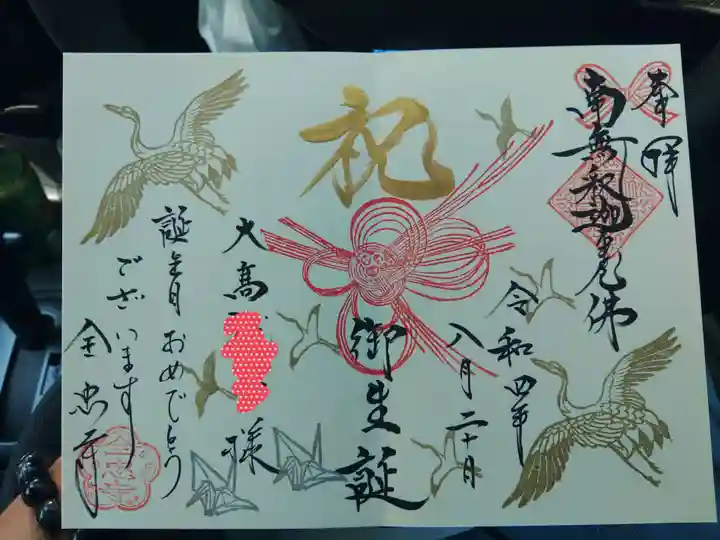 奉拝
南無釈迦牟尼佛
令和四年
八月二十日
祝
御生誕
大髙
様
誕生月おめでとう
ございます
全忠寺